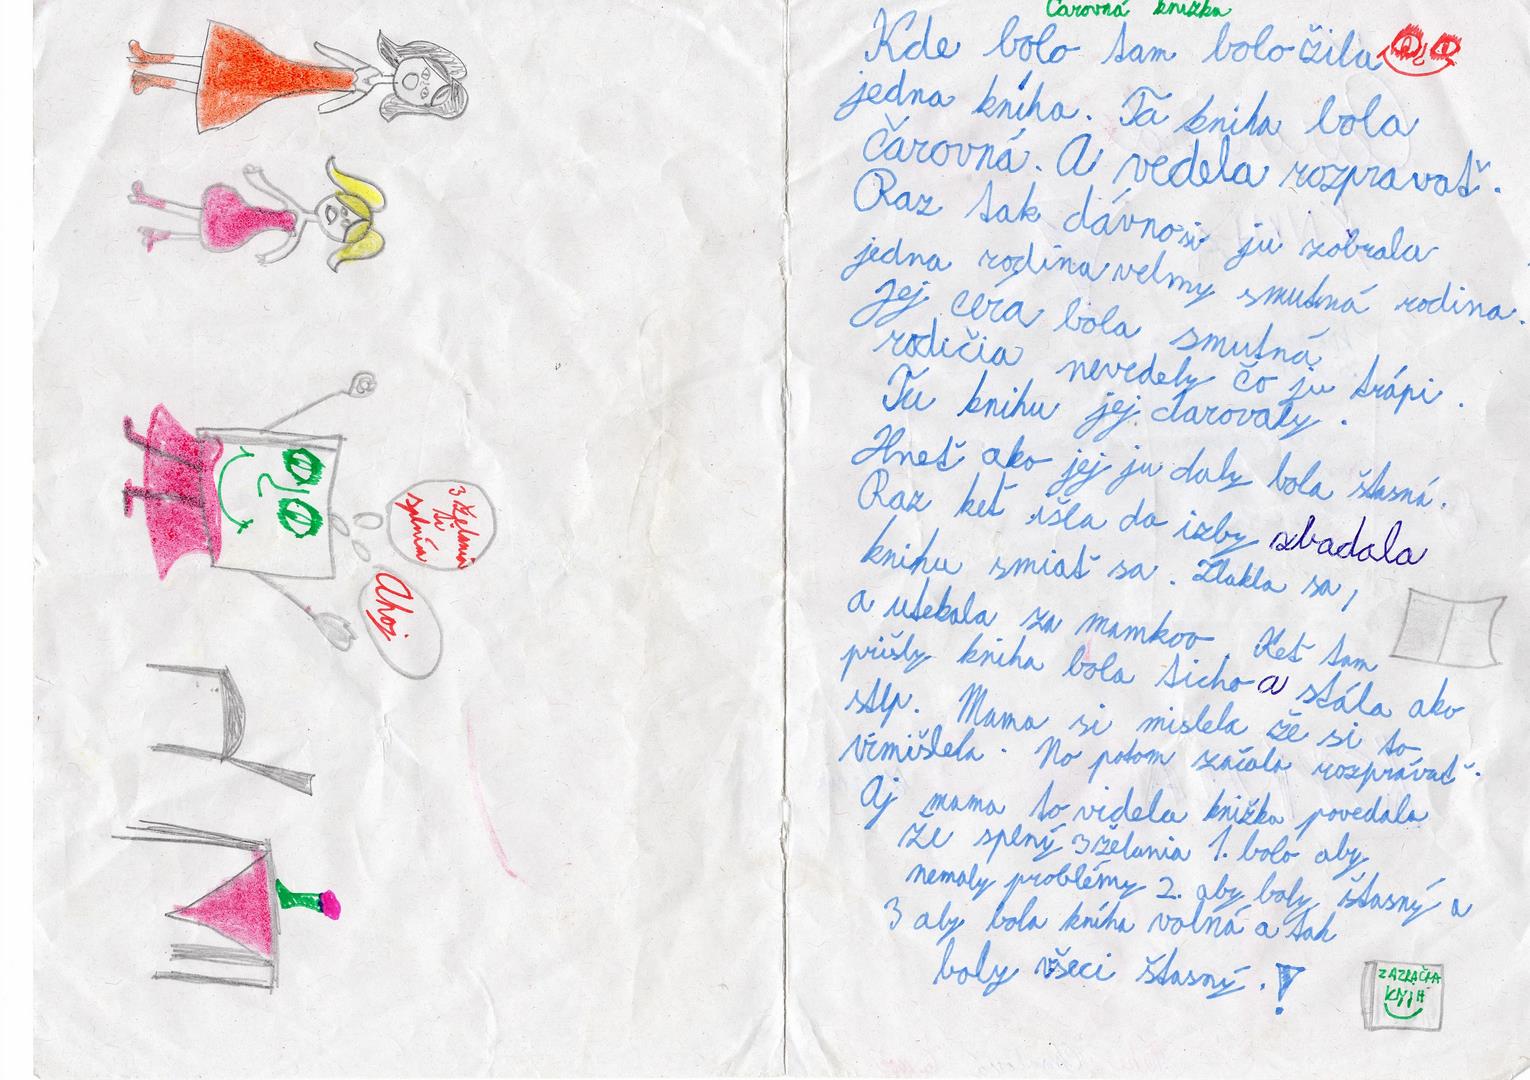 Čarovná knižka
Kde bolo tam bolo žila
jedna kniha. Tá kniha bola
čarovná. A vedela rozpravať.
Raz tak dávnosi ju zobrala
jedna rodina velmy smutná rodina.
Jej céra bola smutná
rodičia nevedely čo ju trápi.
Tu knihu jej darovaly.
Hneť ako jej ju daly bola šťasná.
Raz keť išla do izby zbadala
knihu smiať sa. Zlakla sa,
a utekala za mamkoo. Keť tam
prišly kniha bola ticho a stála ako
stlp. Mama si mislela že si to
vimišlela. No potom začala rozprávať.
Aj mama to videla knižka povedala
že splný 3 želania 1. bolo aby
nemaly problémy 2. aby boly šťasný a
3 aby bola kniha volná a tak
boly všeci šťasný.!
ZAZRAČNA
KNIH
3 želania
ti
splnia
Ahoj